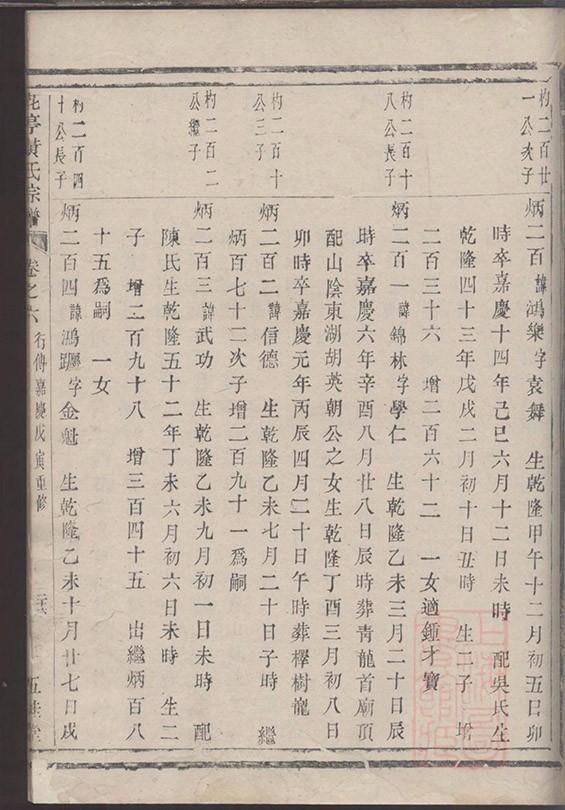 杓二百廿
一公次子
炳二百諱鴻樂字袁舞　生乾隆甲午十二月初五日卯
時卒嘉慶十四年己巳六月十二日未時　配吳氏生
乾隆四十三年戊戌二月初十日丑時　生二子　增
二百三十六　增二百六十二　一女適鍾才寶
杓二百十
八公長子
炳二百一諱錦林字學仁　生乾隆乙未三月二十日辰
時卒嘉慶六年辛酉八月廿八日辰時葬青龍首廟頂
配山陰東湖胡英朝公之女生乾隆丁酉三月初八日
卯時卒嘉慶元年丙辰四月二十日午時葬樹龍
杓二百十
公三子
炳二百二諱信德　生乾隆乙未七月二十日子時　繼
炳百七十二次子增二百九十一爲嗣
杓二百二
公繼子
炳二百三諱武功　生乾隆乙未九月初一日未時　配
陳氏生乾隆五十二年丁未六月初六日未時　生二
子　增二百九十八　增三百四十五　出繼炳百八
十五爲嗣　一女
杓二百四
十公長子
炳二百四諱鴻字金魁　生乾隆乙未十月廿七日戌
亭黄氏宗譜　卷之六　行傳嘉慶戊寅重修　二十六　五桂堂